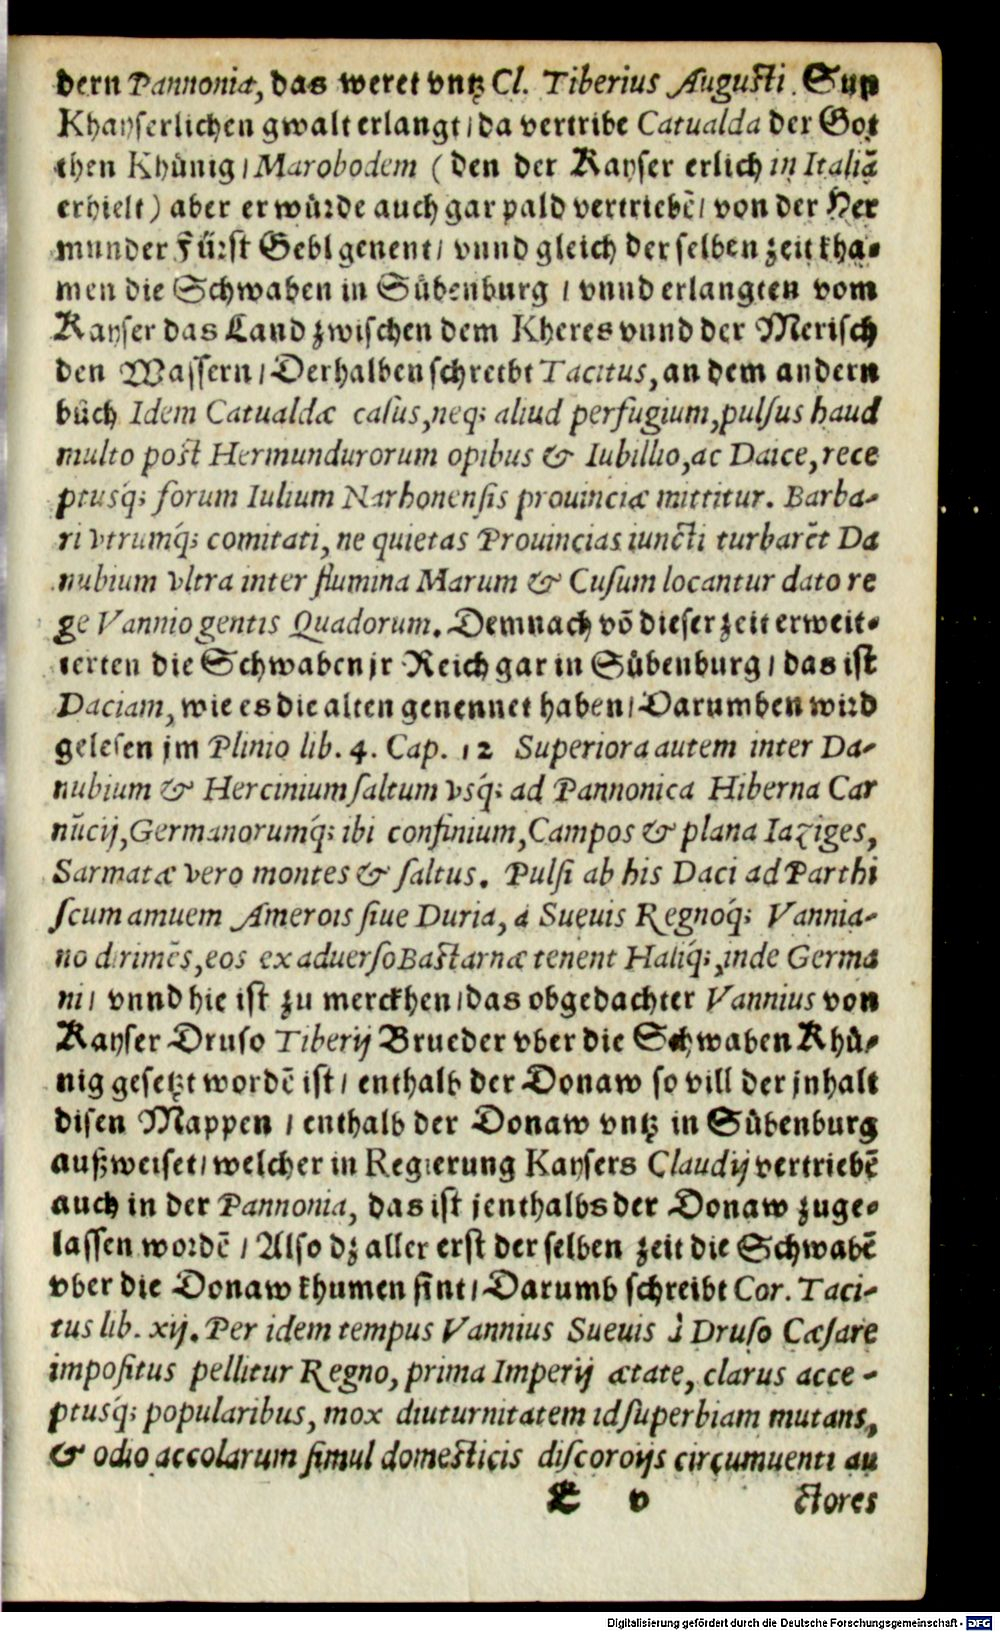 dern Pannoniæ, das weret vntz Cl. Tiberius Augusti Sun
Khayserlichen gwalt erlangt / da vertribe Catualda der Got
then Khünig / Marobodem ( den der Kayser erlich in Italiā
erhielt ) aber er würde auch gar pald vertriebē / von der Her
munder Fürst Gebl genent / vnnd gleich der selben zeit kha-
men die Schwaben in Sübenburg / vnnd erlangten vom
Kayser das Land zwischen dem Kheres vnnd der Merisch
den Wassern / Derhalben schreibt Tacitus, an dem andern
büch Idem Catualdæ casus, neq; aliud perfugium, pulsus haud
multo post Hermundurorum opibus & Iubillio, ac Daice, rece
ptusq́; forum Iulium Narbonensis prouinciæ mittitur. Barba-
ri vtrumq́; comitati, ne quietas Prouincias iuncti turbarēt Da
nubium vltra inter flumina Marum & Cusum locantur dato re
ge Vannio gentis Quadorum. Demnach vō dieser zeit erweit-
terten die Schwaben jr Reich gar in Sübenburg / das ist
Daciam, wie es die alten genennet haben / Darumben wird
gelesen jm Plinio lib. 4. Cap. 12 Superiora autem inter Da-
nubium & Hercinium saltum vsq́; ad Pannonica Hiberna Car
nūcij, Germanorumq́; ibi confinium, Campos & plana Iaziges,
Sarmatæ vero montes & saltus. Pulsi ab his Daci ad Parthi
scum amuem Amerois siue Duria, à Sueuis Regnoq́; Vannia-
no dirimēs, eos ex aduerso Bastarnæ tenent Haliq́;, inde Germa
ni / vnnd hie ist zu merckhen / das obgedachter Vannius von
Kayser Druso Tiberij Brueder vber die Schwaben Khü-
nig gesetzt wordē ist / enthalb der Donaw so vill der jnhalt
disen Mappen / enthalb der Donaw vntz in Sübenburg
außweiset / welcher in Regierung Kaysers Claudij vertriebē
auch in der Pannonia, das ist jenthalbs der Donaw zuge-
lassen wordē / Also dz aller erst der selben zeit die Schwabē
vber die Donaw khumen sint / Darumb schreibt Cor. Taci-
tus lib. xij. Per idem tempus Vannius Sueuis à Druso Cæsare
impositus pellitur Regno, prima Imperij ætate, clarus acce-
ptusq́; popularibus, mox diuturnitatem id superbiam mutans,
& odio accolarum simul domesticis discoroijs circumuenti au
E v ctores
Digitalisierung gefördert durch die Deutsche Forschungsgemeinschaft - DFG